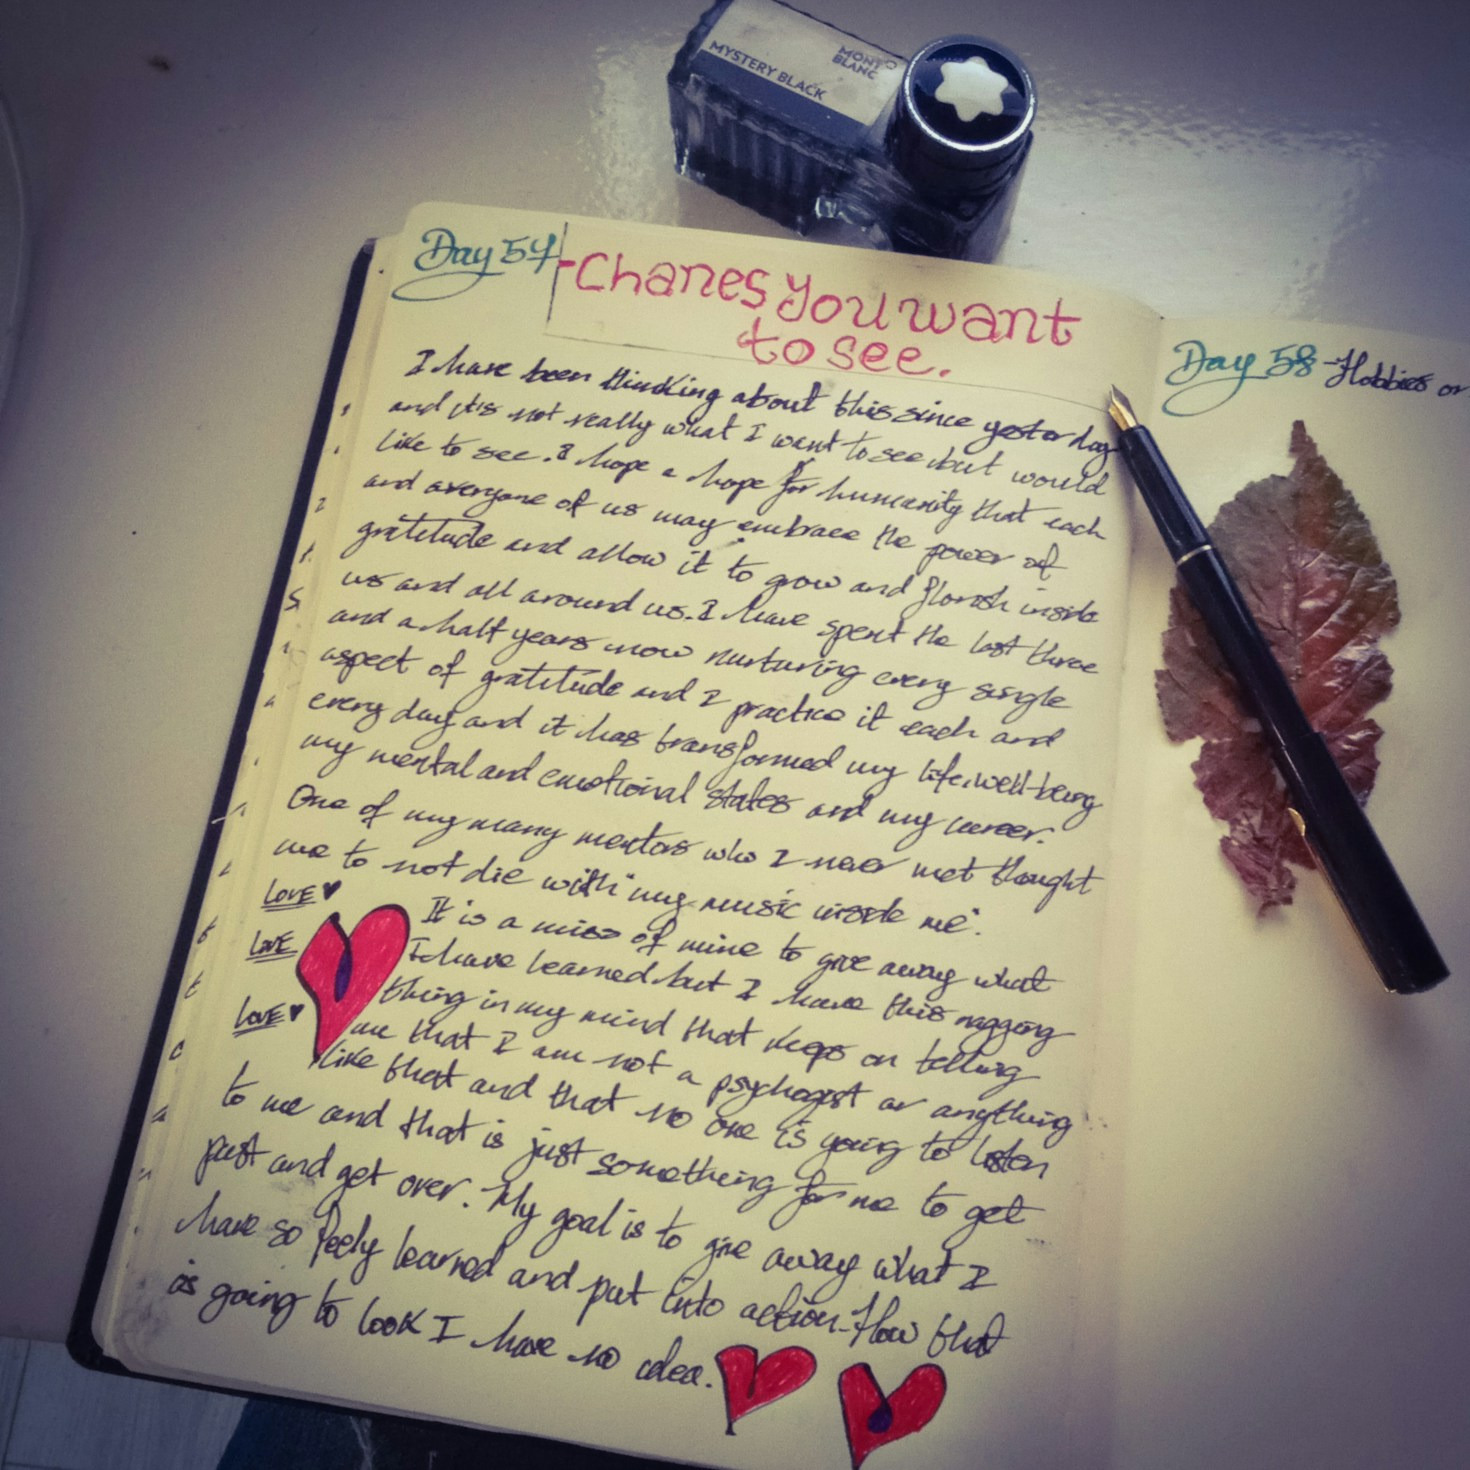 MYSTERY BLACK
MONT
BLANC
Day 57
-Chanes you want
to see.
I have been thinking about this since yesterday
and it's not really what I want to see but would
like to see. I hope a hope for humanity that each
and averyone of us may embrace the power of
gratitude and allow it to grow and florish inside
us and all around us. I have spent the last three
and a half years now nurturing every single
aspect of gratitude and I practice it each and
every day and it has transformed my life, well-being
my mental and emotional states and my career.
One of my many mentors who I never met thought
me to not die with "my music inside me".
LOVE ♥
LOVE
LOVE ♥
It is a miss of mine to give away what
I have learned but I have this nagging
thing in my mind that keeps on telling
me that I am not a psychogist or anything
like that and that no one is going to listen
to me and that is just something for me to get
past and get over. My goal is to give away what I
have so feely learned and put into action. How that
is going to look I have no idea.
Day 58 -Hobbies or